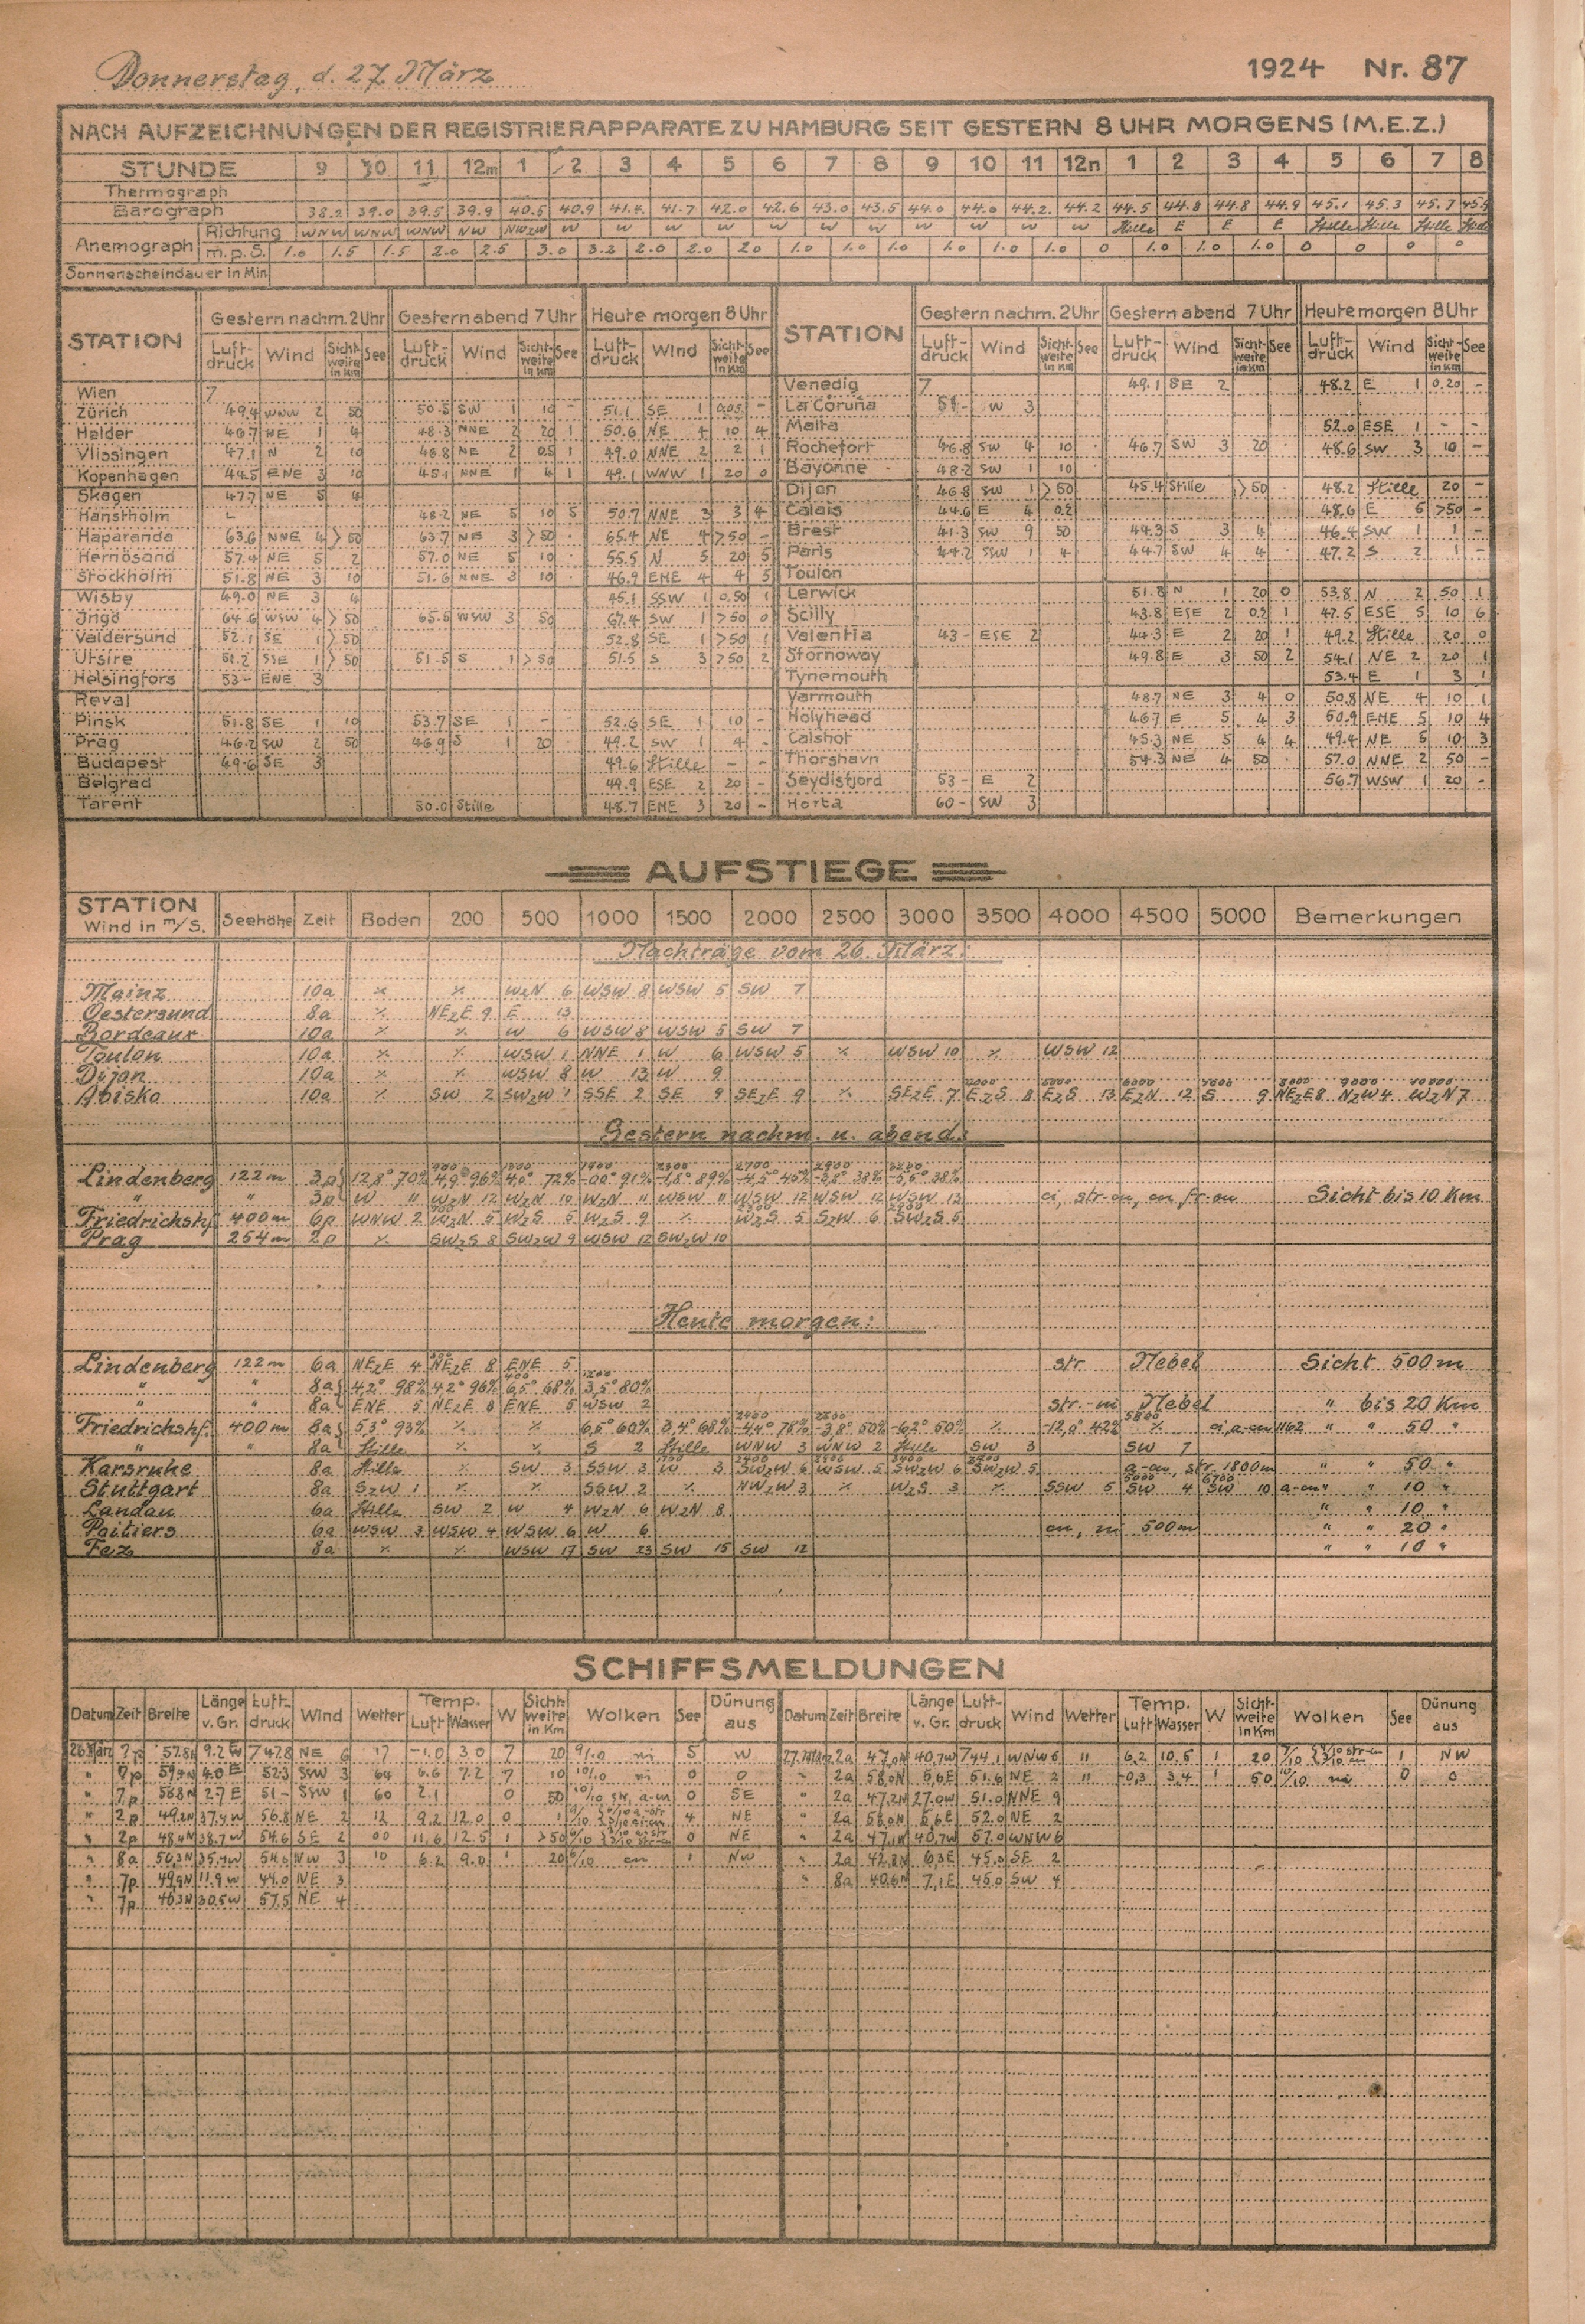 Donnerstag, d. 27. März 1924 Nr. 87
NACH AUFZEICHNUNGEN DER REGISTRIERAPPARATE ZU HAMBURG SEIT GESTERN 8 UHR MORGENS (M.E.Z.)
STUNDE 9 10 11 12m 1 2 3 4 5 6 7 8 9 10 11 12n 1 2 3 4 5 6 7 8
Thermograph
Barograph 38.2 39.0 39.5 39.9 40.5 40.9 41.4 41.7 42.0 42.6 43.0 43.5 44.0 44.0 44.2 44.2 44.5 44.8 44.8 44.9 45.1 45.3 45.7
Anemograph Richtung WNW WNW WNW NW NWzW W W W W W W W W W W W Stille E E E Stille Stille Stille Stille
m.p.S. 1.0 1.5 1.5 2.0 2.5 3.0 3.2 2.0 2.0 20 1.0 1.0 1.0 1.0 1.0 1.0 0 1.0 1.0 1.0 0 0 0 0
Sonnenscheindauer in Min.
STATION Gestern nachm. 2 Uhr Gestern abend 7 Uhr Heute morgen 8 Uhr STATION Gestern nachm. 2 Uhr Gestern abend 7 Uhr Heute morgen 8 Uhr
Luftdruck Wind Sichtweite in Km See Luftdruck Wind Sichtweite in Km See Luftdruck Wind Sichtweite in Km See Luftdruck Wind Sichtweite in Km See Luftdruck Wind Sichtweite in Km See Luftdruck Wind Sichtweite in Km See
Wien 7 Venedig 7 49.1 SE 2 48.2 E 1 0.20 -
Zürich 49.4 WNW 2 50 50.5 SW 1 10 - 51.1 SE 1 0.05 - La Coruña 51- W 3
Helder 46.7 NE 1 4 48.3 NNE 2 20 1 50.6 NE 4 10 4 Malta 52.0 ESE 1 - -
Vlissingen 47.1 N 2 10 46.8 NE 2 0.5 1 49.0 NNE 2 2 1 Rochefort 46.8 SW 4 10 46.7 SW 3 20 48.6 SW 3 10 -
Kopenhagen 44.5 ENE 3 10 45.1 NNE 1 4 1 49.1 WNW 1 20 0 Bayonne 48.2 SW 1 10
Skagen 47.7 NE 5 4 Dijon 46.8 SW 1 >50 45.4 Stille >50 48.2 Stille 20 -
Hanstholm 48.2 NE 5 10 5 50.7 NNE 3 3 4 Calais 44.6 E 4 0.2 48.6 E 6 >50 -
Haparanda 63.6 NNE 4 >50 63.7 NE 3 >50 65.4 NE 4 >50 - Brest 41.3 SW 9 50 44.3 S 3 4 46.4 SW 1 1 -
Hernösand 57.4 NE 5 2 57.0 NE 5 10 55.5 N 5 20 5 Paris 44.2 SSW 1 4 44.7 SW 4 4 47.2 S 2 1 -
Stockholm 51.8 NE 3 10 51.6 NNE 3 10 46.9 ENE 4 4 5 Toulon
Wisby 49.0 NE 3 4 45.1 SSW 1 0.50 1 Lerwick 51.8 N 1 20 0 53.8 N 2 50 1
Ingö 64.6 WSW 4 >50 65.5 WSW 3 50 67.4 SW 1 >50 0 Scilly 43.8 ESE 2 0.2 1 47.5 ESE 5 10 6
Valdersund 52.1 SE 1 >50 52.8 SE 1 >50 1 Valentia 43- ESE 2 44.3 E 2 20 1 49.2 Stille 20 0
Utsire 51.2 SSE 1 >50 51.5 S 1 >50 51.5 S 3 >50 2 Stornoway 49.8 E 3 50 2 54.1 NE 2 20 1
Helsingfors 53- ENE 3 Tynemouth 53.4 E 1 3 1
Reval Yarmouth 48.7 NE 3 4 0 50.8 NE 4 10 1
Pinsk 51.8 SE 1 10 53.7 SE 1 - - 52.6 SE 1 10 - Holyhead 46.7 E 5 4 3 50.9 ENE 5 10 4
Prag 46.2 SW 2 50 46.9 S 1 20 49.2 SW 1 4 - Calshot 45.3 NE 5 4 4 49.4 NE 5 10 3
Budapest 49.6 SE 3 49.6 Stille - - Thorshavn 54.3 NE 4 50 57.0 NNE 2 50 -
Belgrad 49.9 ESE 2 20 - Seydisfjord 53- E 2 56.7 WSW 1 20 -
Tarent 30.0 Stille 48.7 ENE 3 20 - Horta 60- SW 3
AUFSTIEGE
STATION Wind in m/S. Seehöhe Zeit Boden 200 500 1000 1500 2000 2500 3000 3500 4000 4500 5000 Bemerkungen
Nachträge vom 26. März:
Mainz 10a ٪ ٪ WzN 6 WSW 8 WSW 5 SW 7
Oestersund 8a ٪ NEzE 9 E 13
Bordeaux 10a ٪ ٪ W 6 WSW 8 WSW 5 SW 7
Toulon 10a ٪ ٪ WSW 1 NNE 1 W 6 WSW 5 ٪ WSW 10 ٪ WSW 12
Dijon 10a ٪ ٪ WSW 8 W 13 W 9
Abisko 10a ٪ SW 2 SWzW 1 SSE 2 SE 9 SEzE 9 ٪ SEzE 7 EzS 8 EzS 13 EzN 12 S 9 NEzE 8 NzW 4 WzN 7
Gestern nachm. u. abend:
Lindenberg 122m 3p 12,8° 70% 4,9° 96% 4,0° 72% -0,0° 91% -1,8° 89%
" " 3p W 11 WzN 12 WzN 10 WzN 11 WSW 11 WSW 12 WSW 12 WSW 13 ci, str-cu, cu, fr-cu Sicht bis 10 Km
Friedrichshf. 400m 6p WNW 2 WzN 5 WzS 5 WzS 9 ٪ WzS 5 SzW 6 SWzS 5
Prag 254m 2p ٪ SWzS 8 SWzW 9 WSW 12 SWzW 10
Heute morgen:
Lindenberg 122m 6a NEzE 4 NEzE 8 ENE 5 str Nebel Sicht 500m
" " 8a 4,2° 98% 4,2° 96% 6,5° 68% 3,5° 80%
" 8a ENE 5 NEzE 8 ENE 5 WSW 2 str.-ni Nebel " bis 20 Km
Friedrichshf. 400m 8a 5,3° 93% ٪ ٪ 6,5° 60% 3,4° 68% -4,4° 78% -3,8° 50% -6,2° 50% ٪ -12,0° 42% ٪ ci, a-cu " " 50 "
" " 8a Stille ٪ ٪ S 2 Stille WNW 3 WNW 2 Stille SW 3 SW 7
Karsruhe 8a Stille ٪ SW 3 SSW 3 W 3 SWzW 6 WSW 5 SWzW 6 SWzW 5 a-cu, str. 1800m " " 50 "
Stuttgart 8a SzW 1 ٪ ٪ SSW 2 ٪ NWzW 3 ٪ WzS 3 ٪ SSW 5 SW 4 SW 10 a-cu " " 10 "
Landau 6a Stille SW 2 W 4 WzN 6 WzN 8 " " 10 "
Poitiers 6a WSW 3 WSW 4 WSW 6 W 6 cu, ni 500m " " 20 "
Fez 8a ٪ ٪ WSW 17 SW 23 SW 15 SW 12 " " 10 "
SCHIFFSMELDUNGEN
Datum Zeit Breite Länge v. Gr. Luftdruck Wind Wetter Temp. Luft Wasser W Sichtweite in Km Wolken See Dünung aus Datum Zeit Breite Länge v. Gr. Luftdruck Wind Wetter Temp. Luft Wasser W Sichtweite in Km Wolken See Dünung aus
26.März 7p 57.8N 9.2W 747.8 NE 6 17 -1.0 3.0 7 20 9/10 ni 5 W 27.März 2a 47,0N 40,7W 744.1 WNW 6 11 6,2 10,5 1 20 1 NW
" 7p 59.9N 4.0E 52.3 SSW 3 64 6.6 7.2 7 10 10/10 ni 0 0 " 2a 58,0N 5,6E 51.6 NE 2 11 -0,3 3.4 1 50 10/10 0 0
" 7p 56.8N 2.7E 51- SSW 1 60 2.1 0 50 10/10 str, a-cu 0 SE " 2a 47,2N 27.0W 51.0 NNE 9
" 2p 49.2N 37.4W 56.8 NE 2 12 9,2 12.0 0 4 NE " 2a 58,0N 5,6E 52.0 NE 2
" 2p 48.4N 38.7W 54.6 SE 2 00 11.6 12.5 1 >50 0 NE " 2a 47,1N 40,7W 57.0 WNW 6
" 8a 50,3N 35.4W 54.6 NW 3 10 6.2 9.0 1 20 6/10 cu 1 NW " 2a 42.8N 6,3E 45.0 SE 2
" 7p 49,9N 11.9W 44.0 NE 3 " 8a 40.6N 7,1E 45.0 SW 4
" 7p 46.3N 30.5W 57.5 NE 4